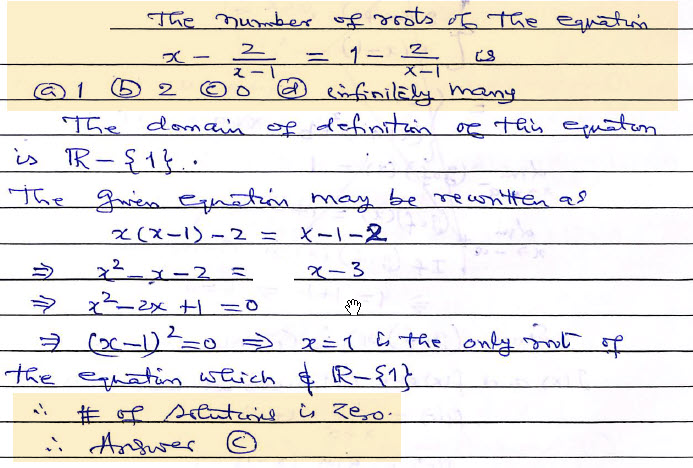 The number of roots of the equation
x - 2/(x-1) = 1 - 2/(x-1) is
(a) 1 (b) 2 (c) 0 (d) infinitely many
The domain of definition of this equation
is ℝ - {1}.
The given equation may be rewritten as
x(x-1) - 2 = x-1-2
⇒ x² - x - 2 = x - 3
⇒ x² - 2x + 1 = 0
⇒ (x-1)² = 0 ⇒ x = 1 is the only root of
the equation which ∉ ℝ - {1}
∴ # of solutions is zero.
∴ Answer (c)